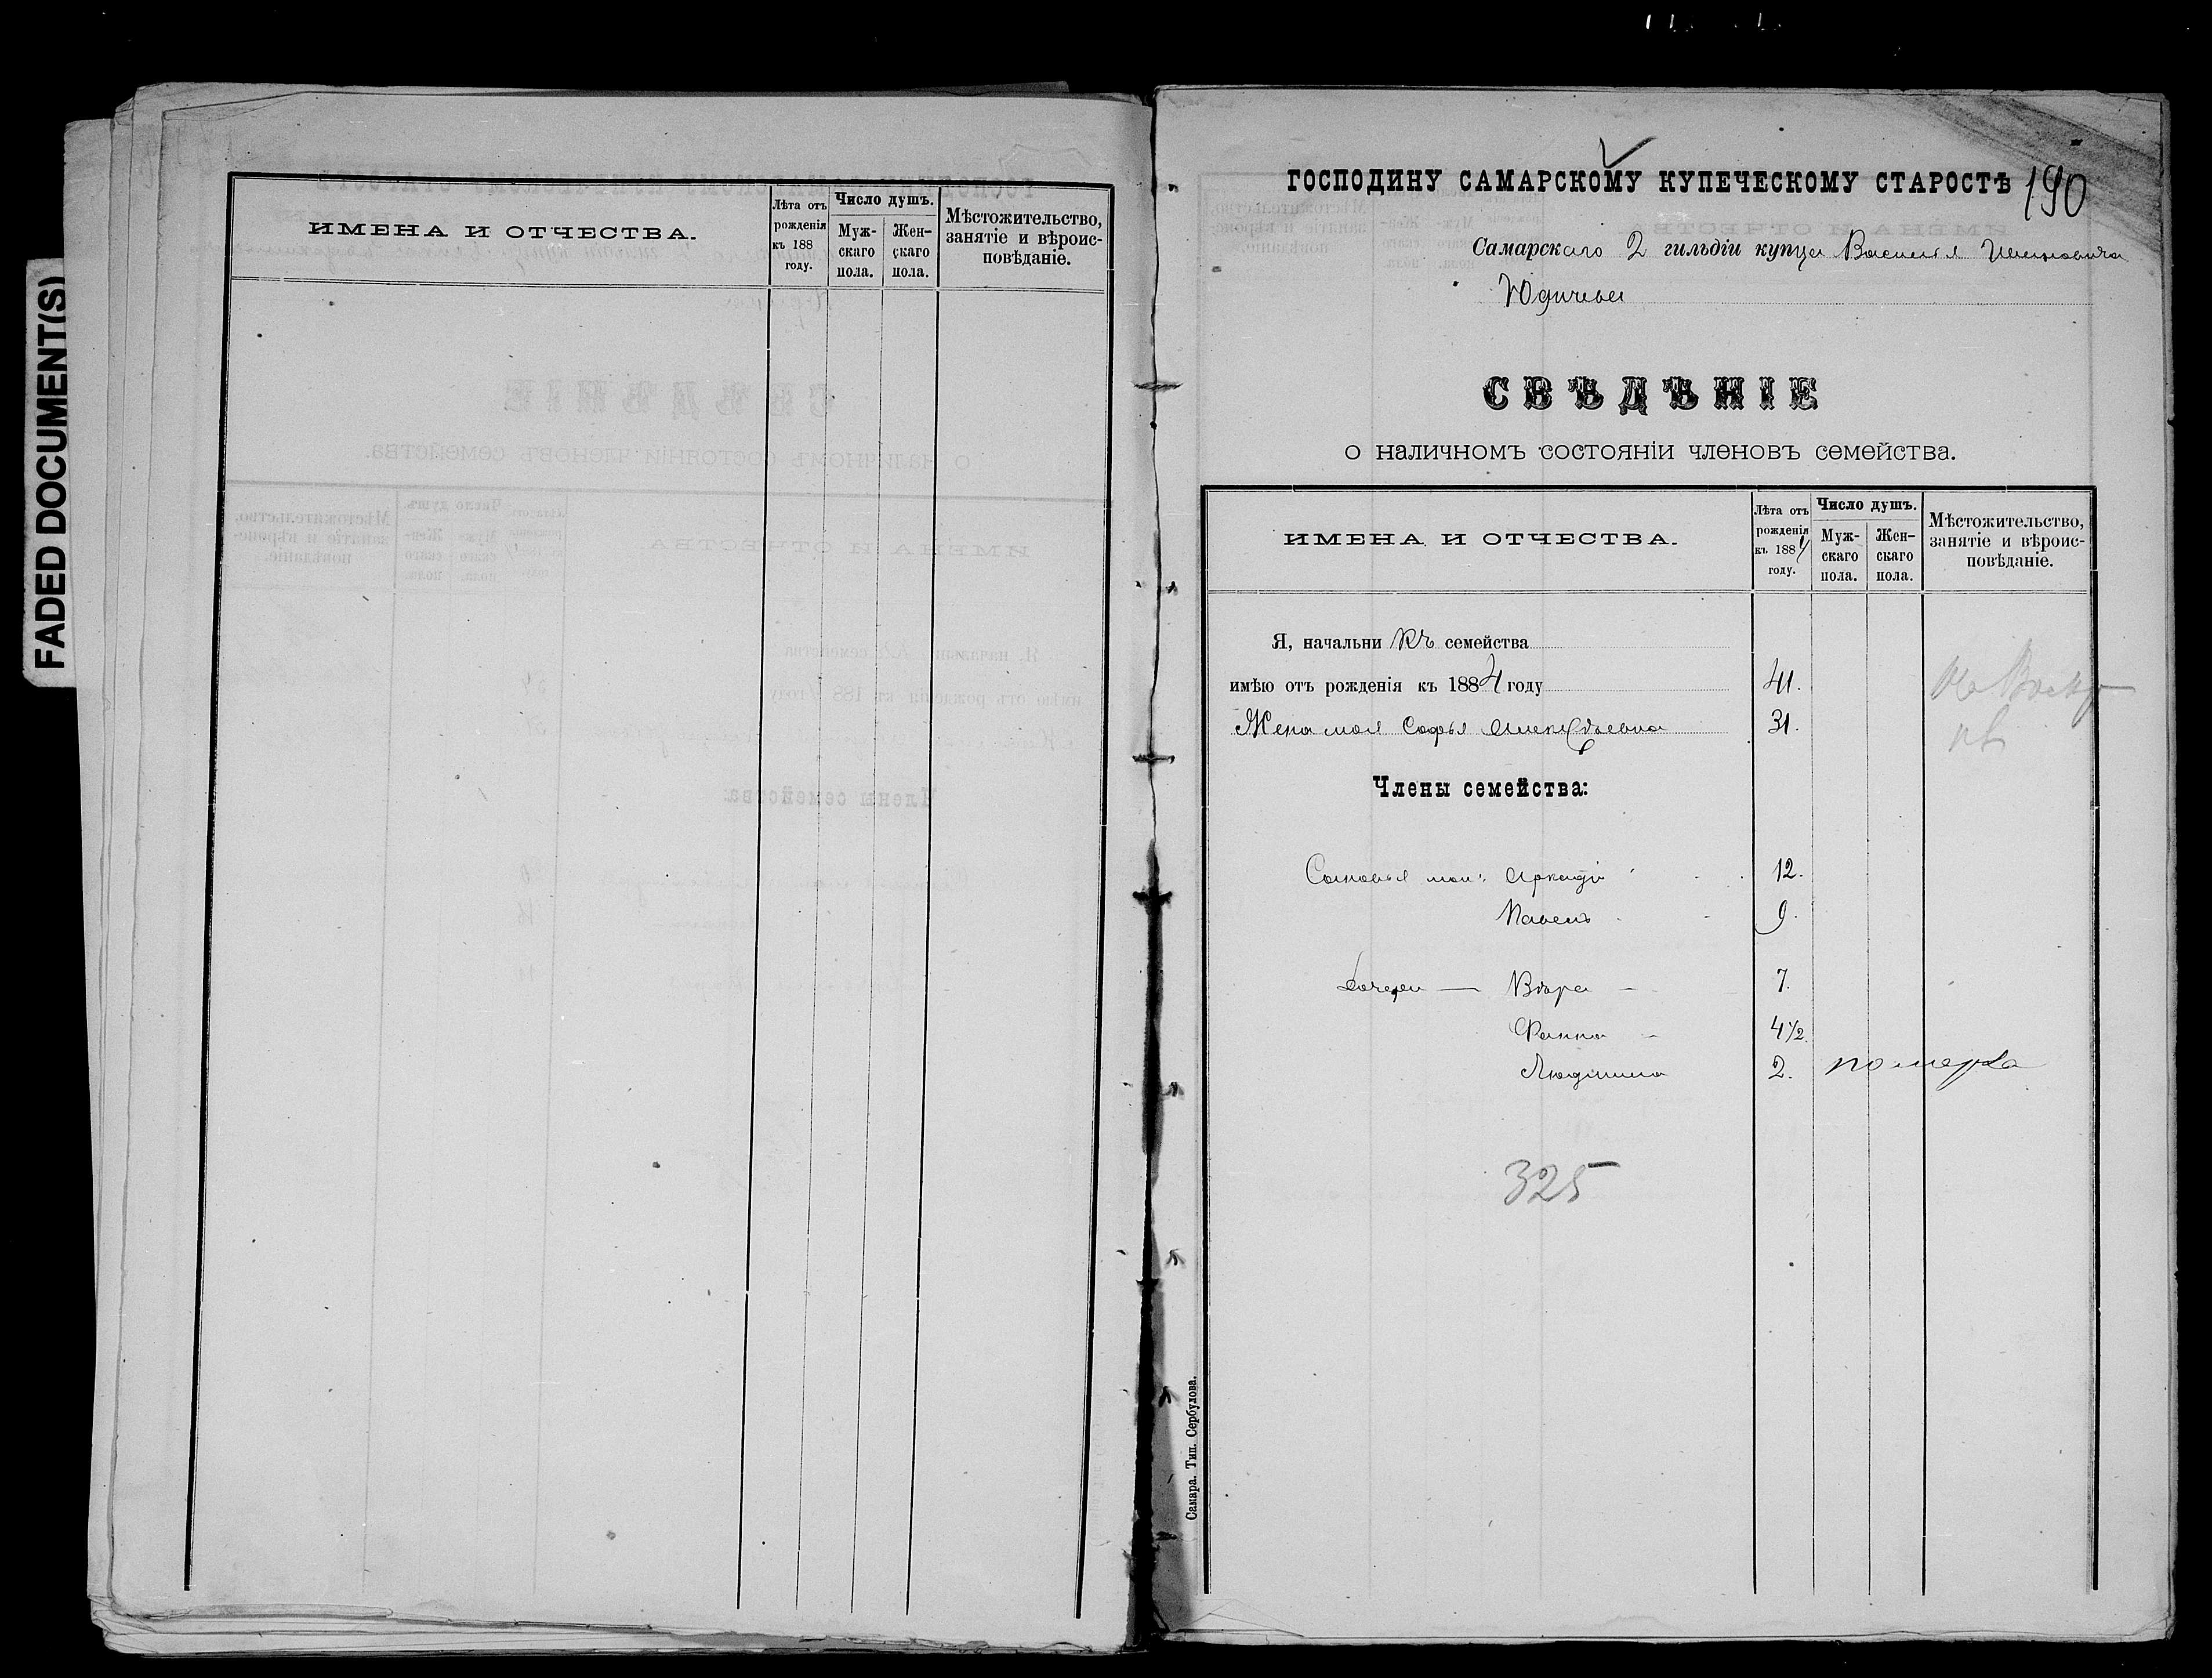 FADED DOCUMENT(S)
ИМЕНА И ОТЧЕСТВА.
Лѣта отъ рожденія къ 188 году.
Число душъ.
Муж-скаго пола.
Жен-скаго пола.
Мѣстожительство, занятіе и вѣроис-повѣданіе.
ГОСПОДИНУ САМАРСКОМУ КУПЕЧЕСКОМУ СТАРОСТѢ
190
Самарскаго 2 гильдіи купца Василья
СВѢДѢНІЕ
о наличномъ состояніи членовъ семейства.
ИМЕНА И ОТЧЕСТВА.
Лѣта отъ рожденія къ 1884 году.
Число душъ.
Муж-скаго пола.
Жен-скаго пола.
Мѣстожительство, занятіе и вѣроис-повѣданіе.
Я, начальникъ семейства
имѣю отъ рожденія къ 1884 году 41.
Жена моя Софья 31.
Члены семейства:
Сыновья мои: Аркадій 12.
Павелъ 9.
Дочери — Вѣра 7.
4 1/2.
Людмила 2. померла
325
Самара. Тип. Сербулова.